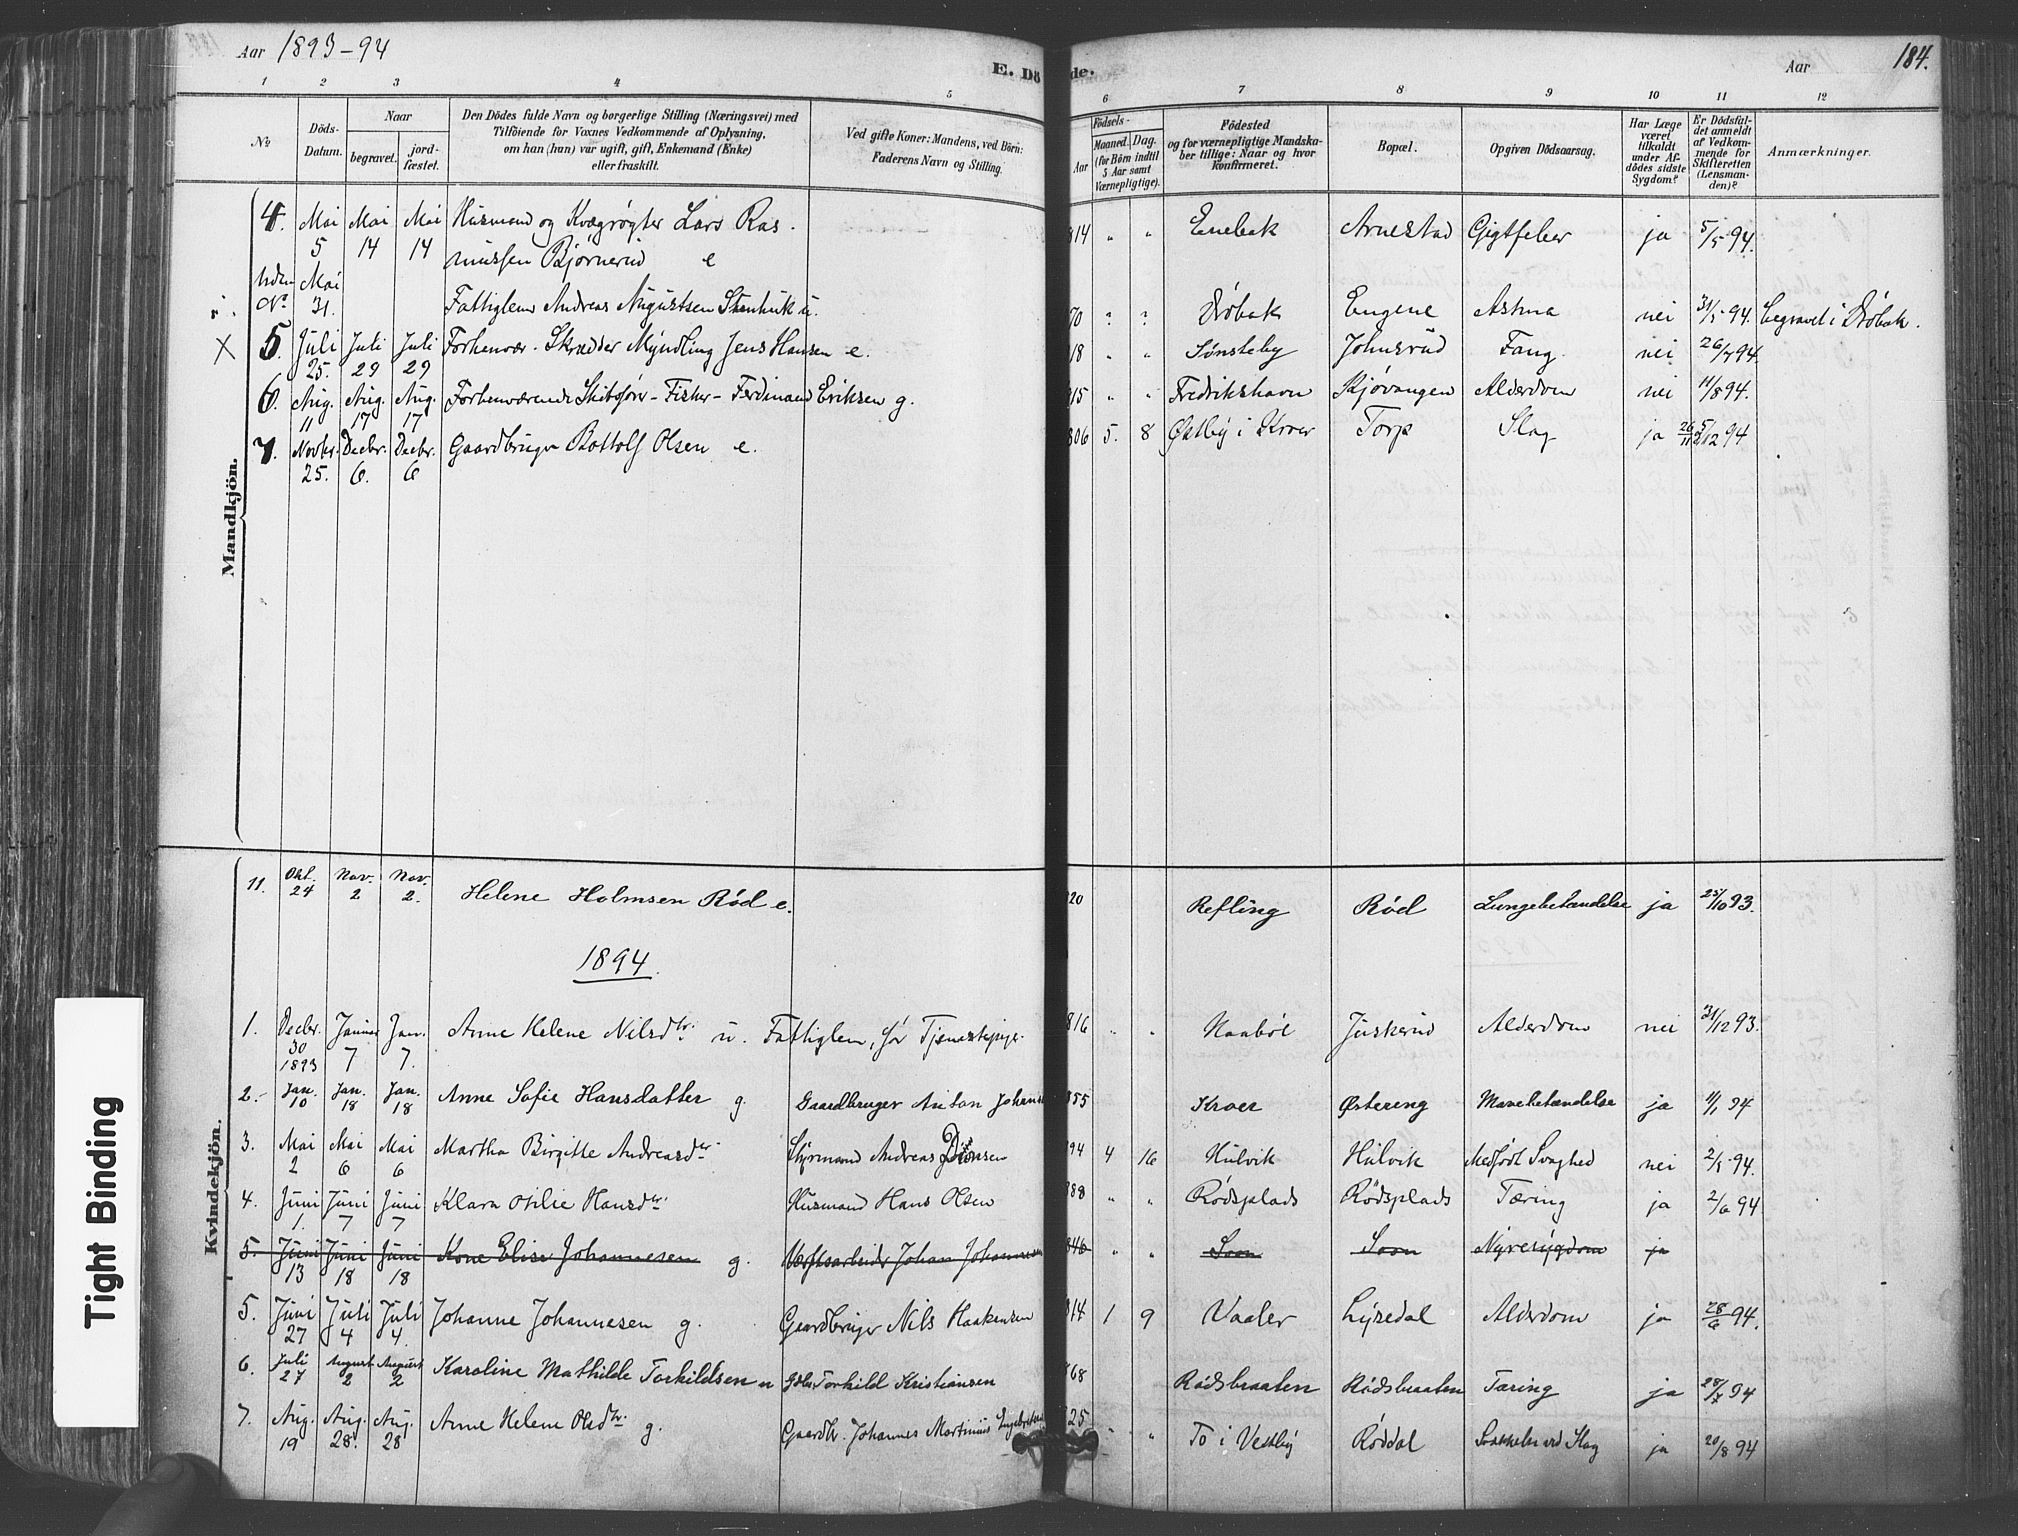 Aar 1893-94
E. Dö de.
Aar
184.
1 2 3 4 5 6 7 8 9 10 11 12
No
Döds-Datum.
Naar
begravet.
jord-fæstet.
Den Dödes fulde Navn og borgerlige Stilling (Næringsvei) med
Tilföiende for Voxnes Vedkommende af Oplysning,
om han (hun) var ugift, gift, Enkemand (Enke)
eller fraskilt.
Ved gifte Koner: Mandens, ved Börn:
Faderens Navn og Stilling.
Födsels-
Aar
Maaned. Dag.
(for Börn indtil
5 Aar samt
Værnepligtige).
Födested
og for værnepligtige Mandska-
ber tillige: Naar og hvor
konfirmeret.
Bopæl.
Opgiven Dödsaarsag.
Har Læge
været
tilkaldt
under Af-
dödes sidste
Sygdom?
Er Dödsfal-
det anmeldt
af Vedkom-
mende for
Skifteretten
(Lensman-
den)?
Anmærkninger.
Mandkjön.
4. Mai 5 Mai 14 Mai 14 Husmand og Kvægrøgter Lars Ras- 814 " " Enebak Arnestad Gigtfeber ja 5/5 94.
mussen Bjørnerud e
Uden No. Mai 31. Fattiglem Andreas Augustsen Stenhuk u. 70 ? ? Drøbak Eugene Astma nei 31/5 94. begravet i Drøbak.
X 5. Juli 25. Juli 29 Juli 29 Forhenvær. Skrædder Myndling Jens Hansen e. 18 " " Sønsteby Johnsrud Fang. nei 26/7 94.
6. Aug. 11 Aug. 17 Aug. 17 Forhenværende Skibsfører - Fisker - Ferdinand Eriksen g. 15 " " Fredrikshavn Kjøvangen Alderdom nei 11/8 94.
7. Novbr. 25. Decbr. 6. Decbr. 6 Gaardbruger Bottolf Olsen e. 806 5. 8 Østby i Kroer Torp Slag ja 26/11 5/12 94
Kvindekjön.
11. Okt. 24 Nov. 2 Nov. 2. Helene Holmsen Rød e. 20 Refling Rød Lungebetændelse ja 25/10 93.
1894.
1. Decbr. 30 1893 Januar 7 Jan. 7. Anne Helene Nilsdtr. u. Fattiglem, før Tjenestepige. 816 " " Naabøl Juskerud Alderdom nei 31/12 93.
2.- Jan. 10 Jan. 18 Jan. 18 Anne Sofie Hansdatter g. Gaardbruger Anton Johans 855 Kroer Østereng Mavebetændelse ja 11/1 94
3. Mai 2 Mai 6 Mai 6 Martha Birgitte Andreasdtr. Styrmand Andreas 94 4 16 Hulvik Hulvik Medfødt Svaghed nei 2/5 94.
4. Juni 1. Juni 7 Juni 7 Klara Otilie Hansdtr. Husmand Hans Olsen 88 " " Rødsplads Rødsplads Tæring ja 2/6 94
5. Juni 13 Juni 18 Juni 18 Kone Elise Johannesen g. Verftsarbeider Johan Johannesen 846 " " Soon Soon Nyresygdom ja
5. Juni 27 Juli 4 Juli 4. Johanne Johannesen g. Gaardbruger Nils Haakensen 14 1 9 Vaaler Lysedal Alderdom ja 28/6 94.
6. Juli 27 August 2 August 2 Karoline Mathilde Torkildsen u Torkild Kristiansen 68 Rødsbraaten Rødsbraaten Tæring ja 28/7 94
7. Aug. 19 Aug. 28. Aug. 28 Anne Helene Olsdtr. g. Gaardbr. Johannes Martinius Engebretsen 25 " " To i Vestby Røddal Slag ja 20/8 94
Tight Binding